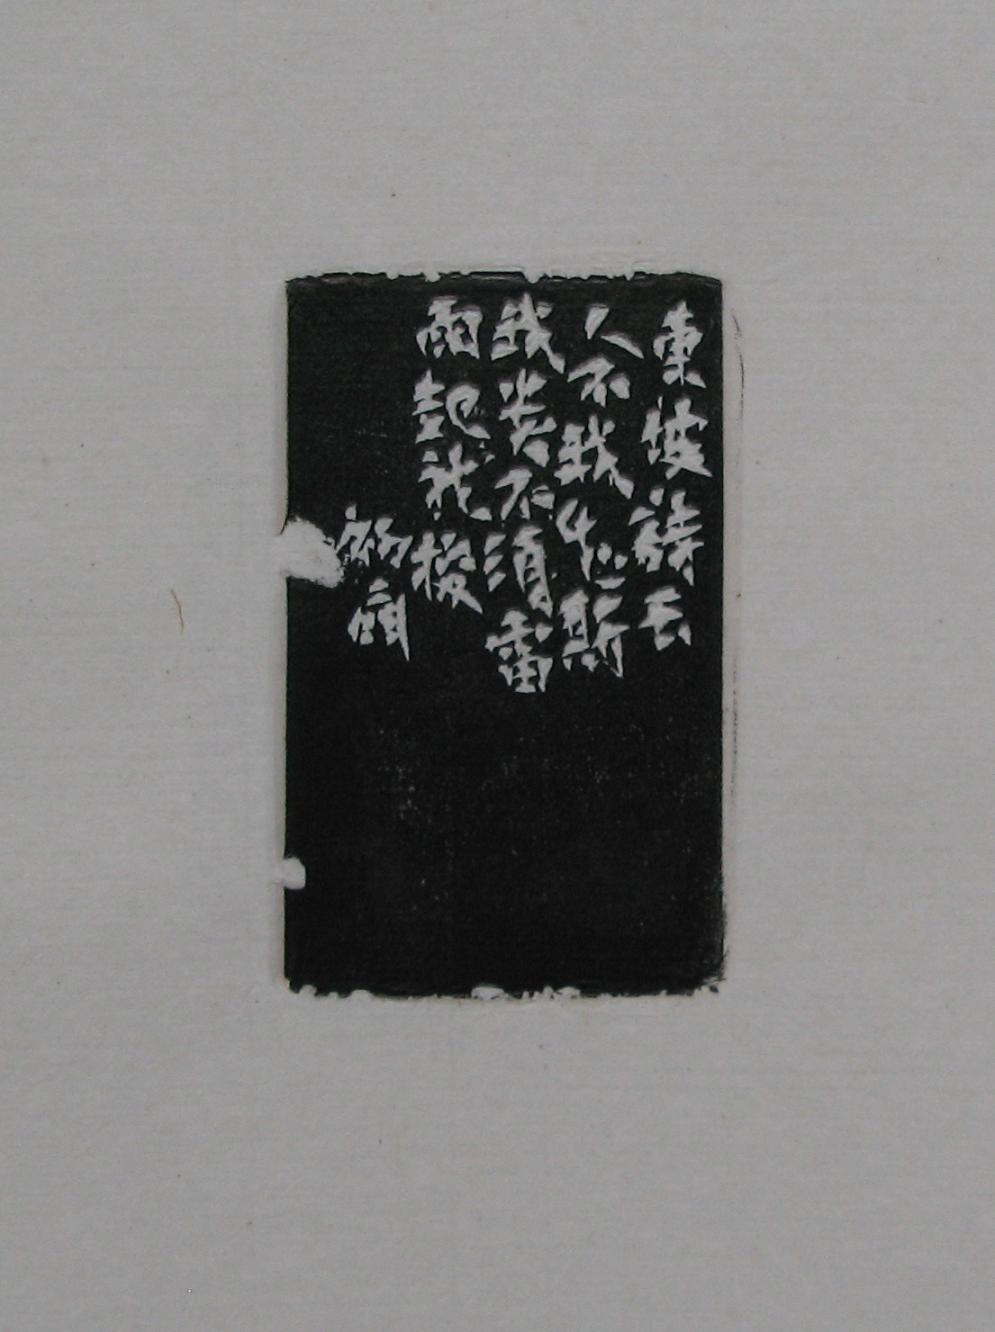 東坡詩云
人不我知斯
我貴不須雷
雨起龍梭